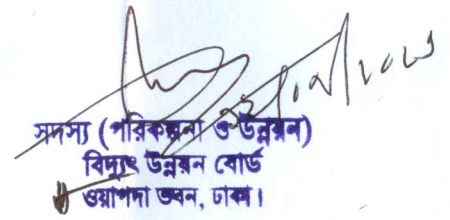 সদস্য (পরিকল্পনা ও উন্নয়ন)
বিদ্যুৎ উন্নয়ন বোর্ড
ওয়াপদা ভবন, ঢাকা।